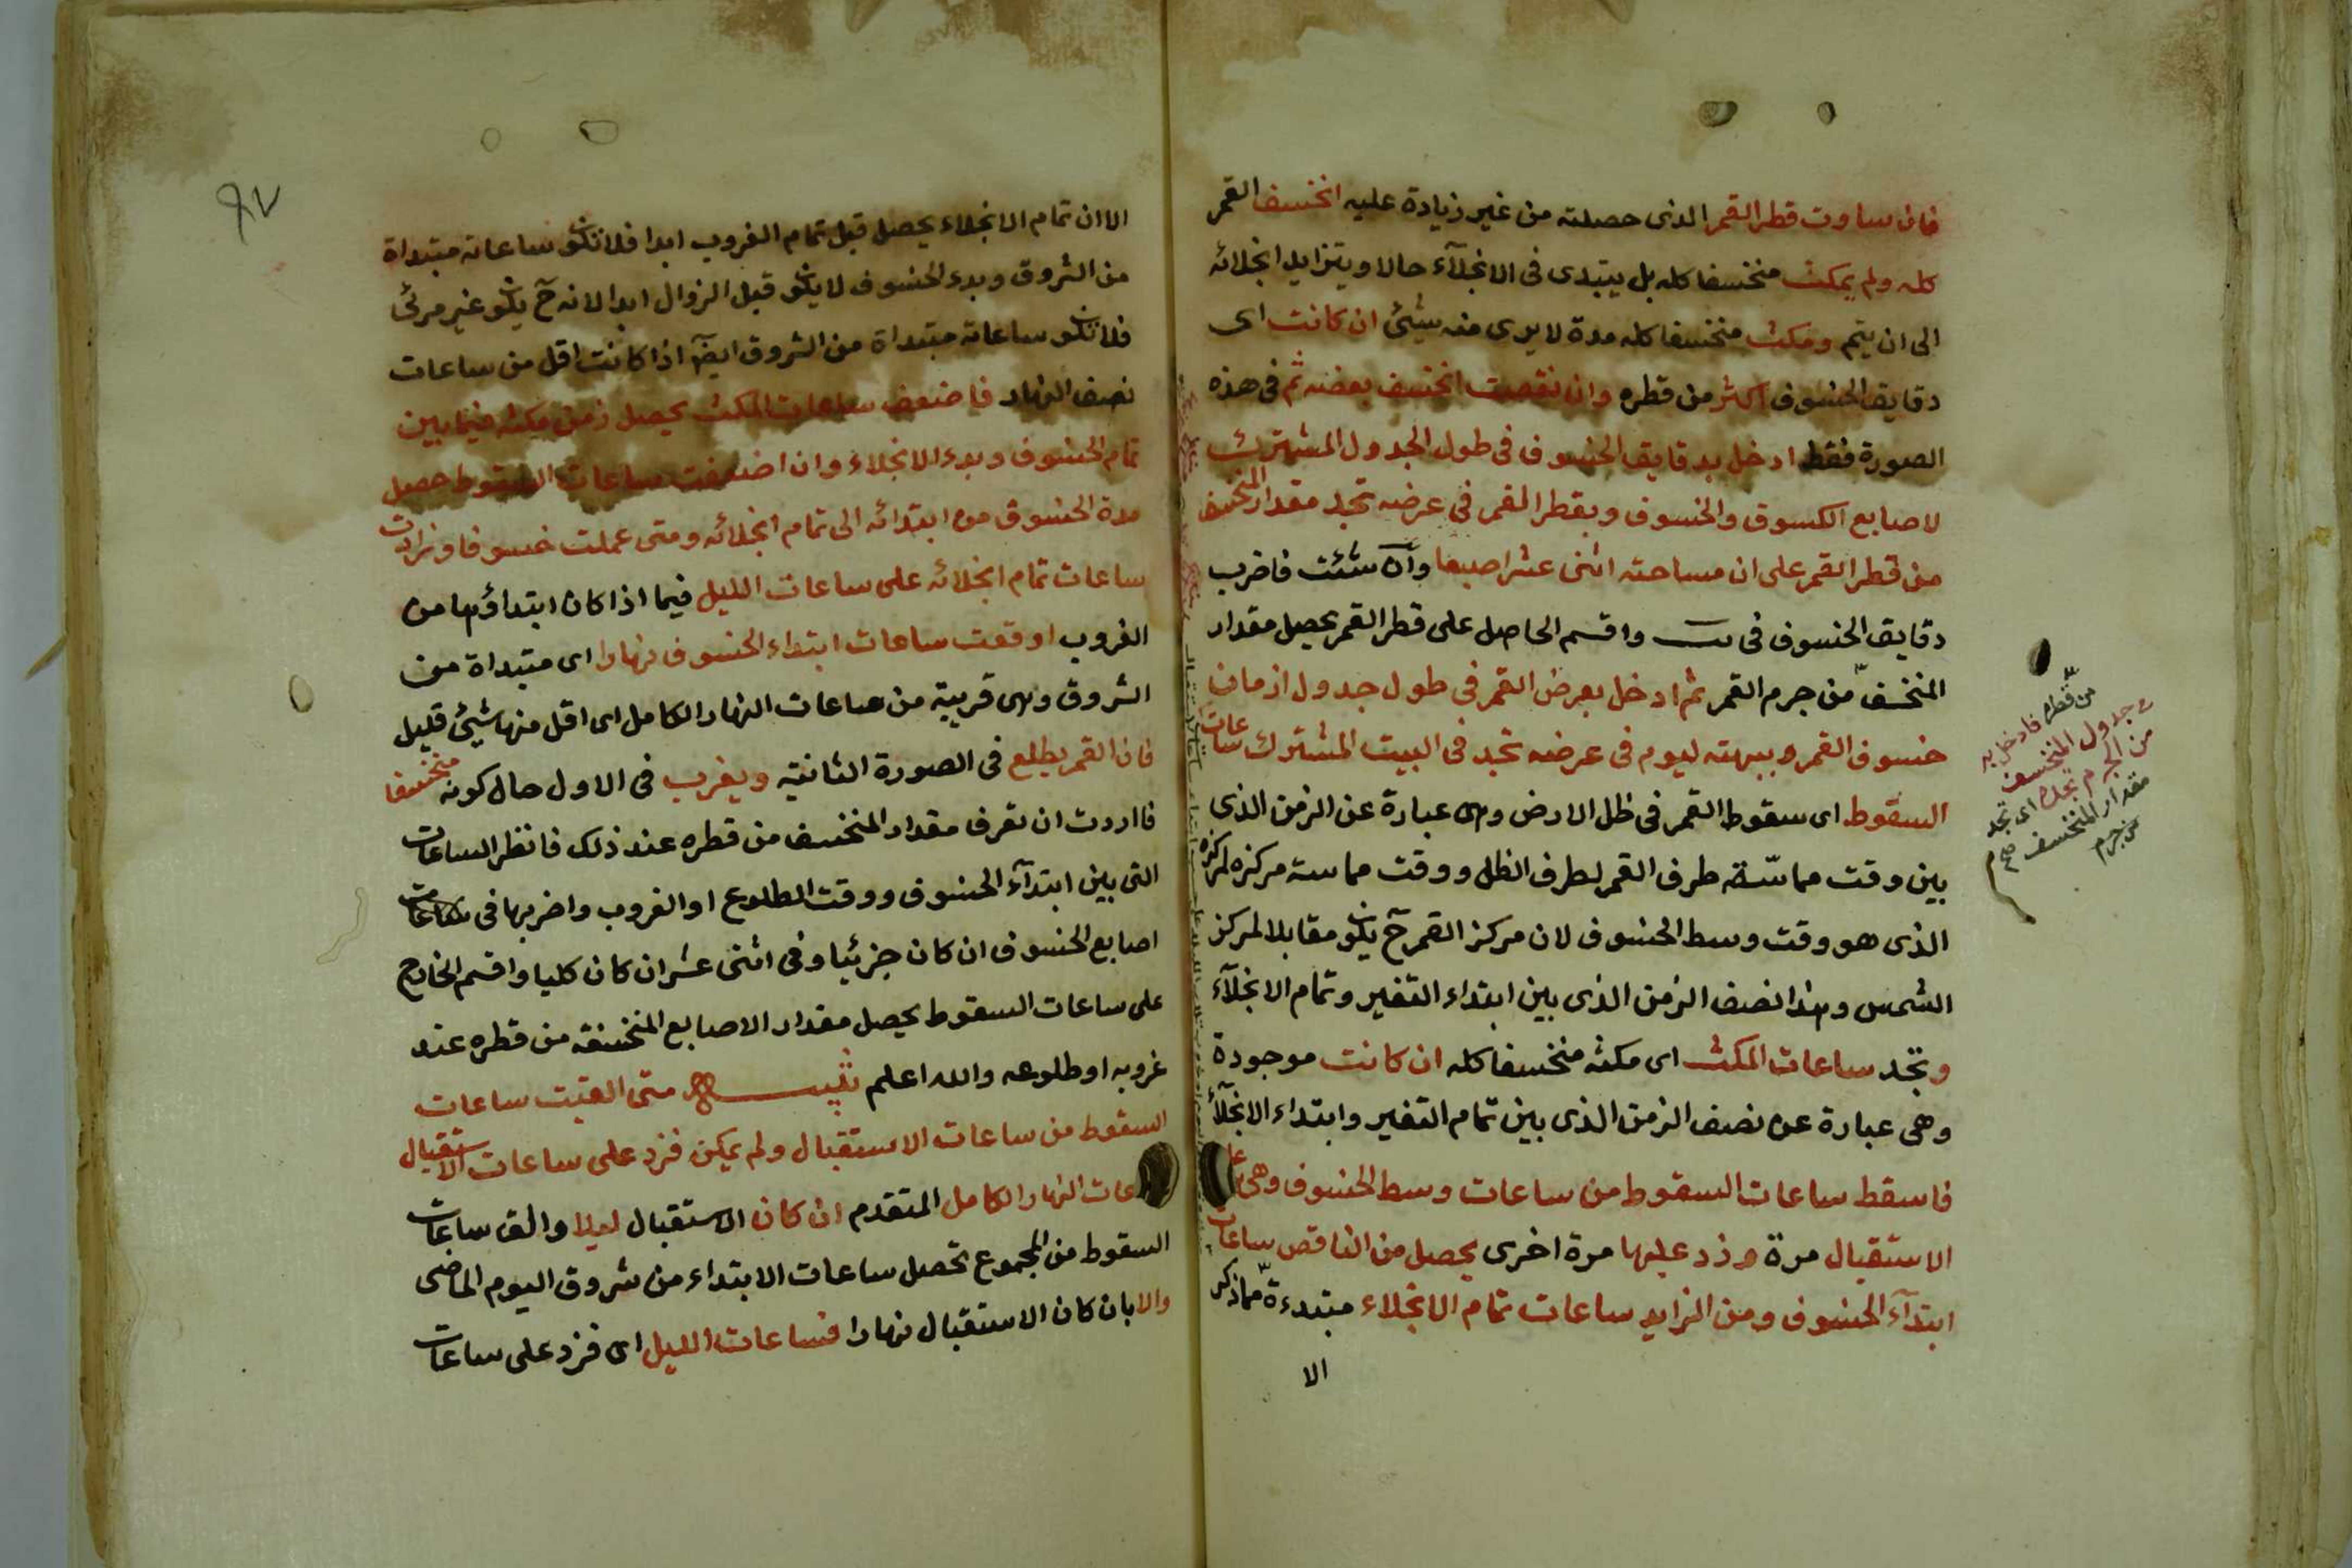 فان ساوت قطر القمر الذى حصلته من غير زيادة عليه انخسف القمر
كله ولم يمكث منخسفا كله بل يبتدى فى الانجلآء حالا ويتزايد انجلائه
الى ان يتم ومكث منخسفا كله مدة لا يرى منه شيئ ان كانت اى
دقايق الخسوف اكثر من قطره وان نقصت انخسف بعضه ثم فى هذه
الصورة فقط ادخل بدقايق الخسوف فى طول الجدول المشترك
لاصابع الكسوف والخسوف وبقطر القمر فى عرضه تجد مقدار المنخسف
من قطر القمر على ان مساحته اثنى عشر اصبعا وان شئت فاضرب
دقايق الخسوف فى يب واقسم الحاصل على قطر القمر يحصل مقدار
المنخسف من جرم القمر ثم ادخل بعرض القمر فى طول جدول ازمان
خسوف القمر وببهته ليوم فى عرضه تجد فى البيت المشترك ساعات
السقوط اى سقوط القمر فى ظل الارض وهى عبارة عن الزمن الذى
بين وقت مماسّة طرف القمر لطرف الظل ووقت مماسة مركزه لمركزه
الذى هو وقت وسط الخسوف لان مركز القمر ح يكون مقابلا لمركز
الشمس وهذا نصف الزمن الذى بين ابتداء التغير وتمام الانجلآء
وتجد ساعات المكث اى مكثه منخسفا كله ان كانت موجودة
وهى عبارة عن نصف الزمن الذى بين تمام التغير وابتداء الانجلآء
فاسقط ساعات السقوط من ساعات وسط الخسوف وهى
الاستقبال مرة وزد عليها مرة اخرى يحصل من الناقص ساعات
ابتدآء الخسوف ومن الزايد ساعات تمام الانجلاء مبتدءة مما ذكر
الا
من قطره فادخل به
فى جدول المنخسف
من الجرم تجد اى تجد
مقدار المنخسف
من جرم
صح
٩٧
الا ان تمام الانجلاء يحصل قبل تمام الغروب ابدا فلا تكون ساعاته مبتداة
من الشروق وبدء الخسوف لا يكون قبل الزوال ابدا لانه ح يكون غير مرئى
فلا تكون ساعاته مبتداة من الشروق ايضا اذا كانت اقل من ساعات
نصف النهار فاضعف ساعات المكث يحصل زمن مكثه فيما بين
تمام الخسوف وبدء الانجلاء وان اضعفت ساعات السقوط حصل
مدة الخسوف من ابتدائه الى تمام انجلائه ومتى عملت خسوفا وزادت
ساعات تمام انجلائه على ساعات الليل فيما اذا كان ابتداؤها من
الغروب او وقعت ساعات ابتداء الخسوف نهارا اى مبتداة من
الشروق وهى قريبة من ساعات النهار الكامل اى اقل منها بشيئ قليل
فان القمر يطلع فى الصورة الثانية ويغرب فى الاول حال كونه منخسفا
فااردت ان تعرف مقدار المنخسف من قطره عند ذلك فانظر الساعات
التى بين ابتدآء الخسوف ووقت الطلوع او الغروب واضربها فى
اصابع الخسوف ان كان جزئيا وفى اثنى عشر ان كان كليا واقسم الخارج
على ساعات السقوط يحصل مقدار الاصابع المنخسفة من قطره عند
غروبه او طلوعه والله اعلم تنبيه متى القيت ساعات
السقوط من ساعات الاستقبال ولم يمكن فزد على ساعات الاستقبال
عات النهار الكامل المتقدم ان كان الاستقبال ليلا والق ساعات
السقوط من المجموع تحصل ساعات الابتداء من شروق اليوم الماضى
والا بان كان الاستقبال نهارا فساعات الليل اى فزد على ساعات